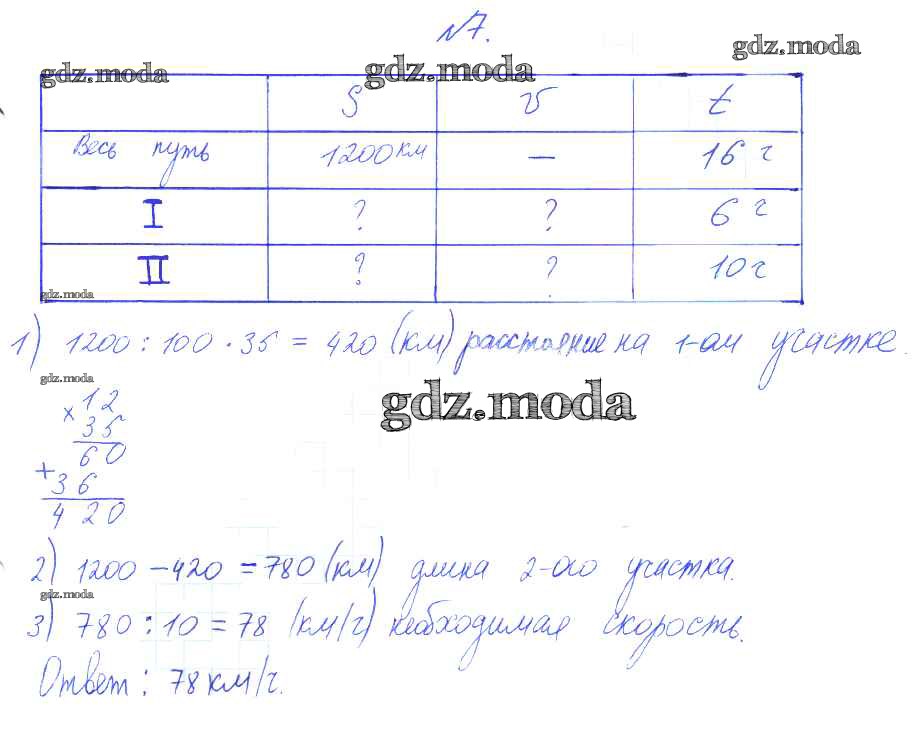 №7.
gdz.moda
gdz.moda gdz.moda
S v t
Весь путь 1200км — 16 ч
I ? ? 6 ч
II ? ? 10ч
gdz.moda
1) 1200 : 100 · 35 = 420 (км) расстояние на 1-ом участке.
gdz.moda
× 12
35
gdz.moda
60
+ 36
420
2) 1200 – 420 = 780 (км) длина 2-ого участка.
gdz.moda
3) 780 : 10 = 78 (км/ч) необходимая скорость.
Ответ: 78км/ч.